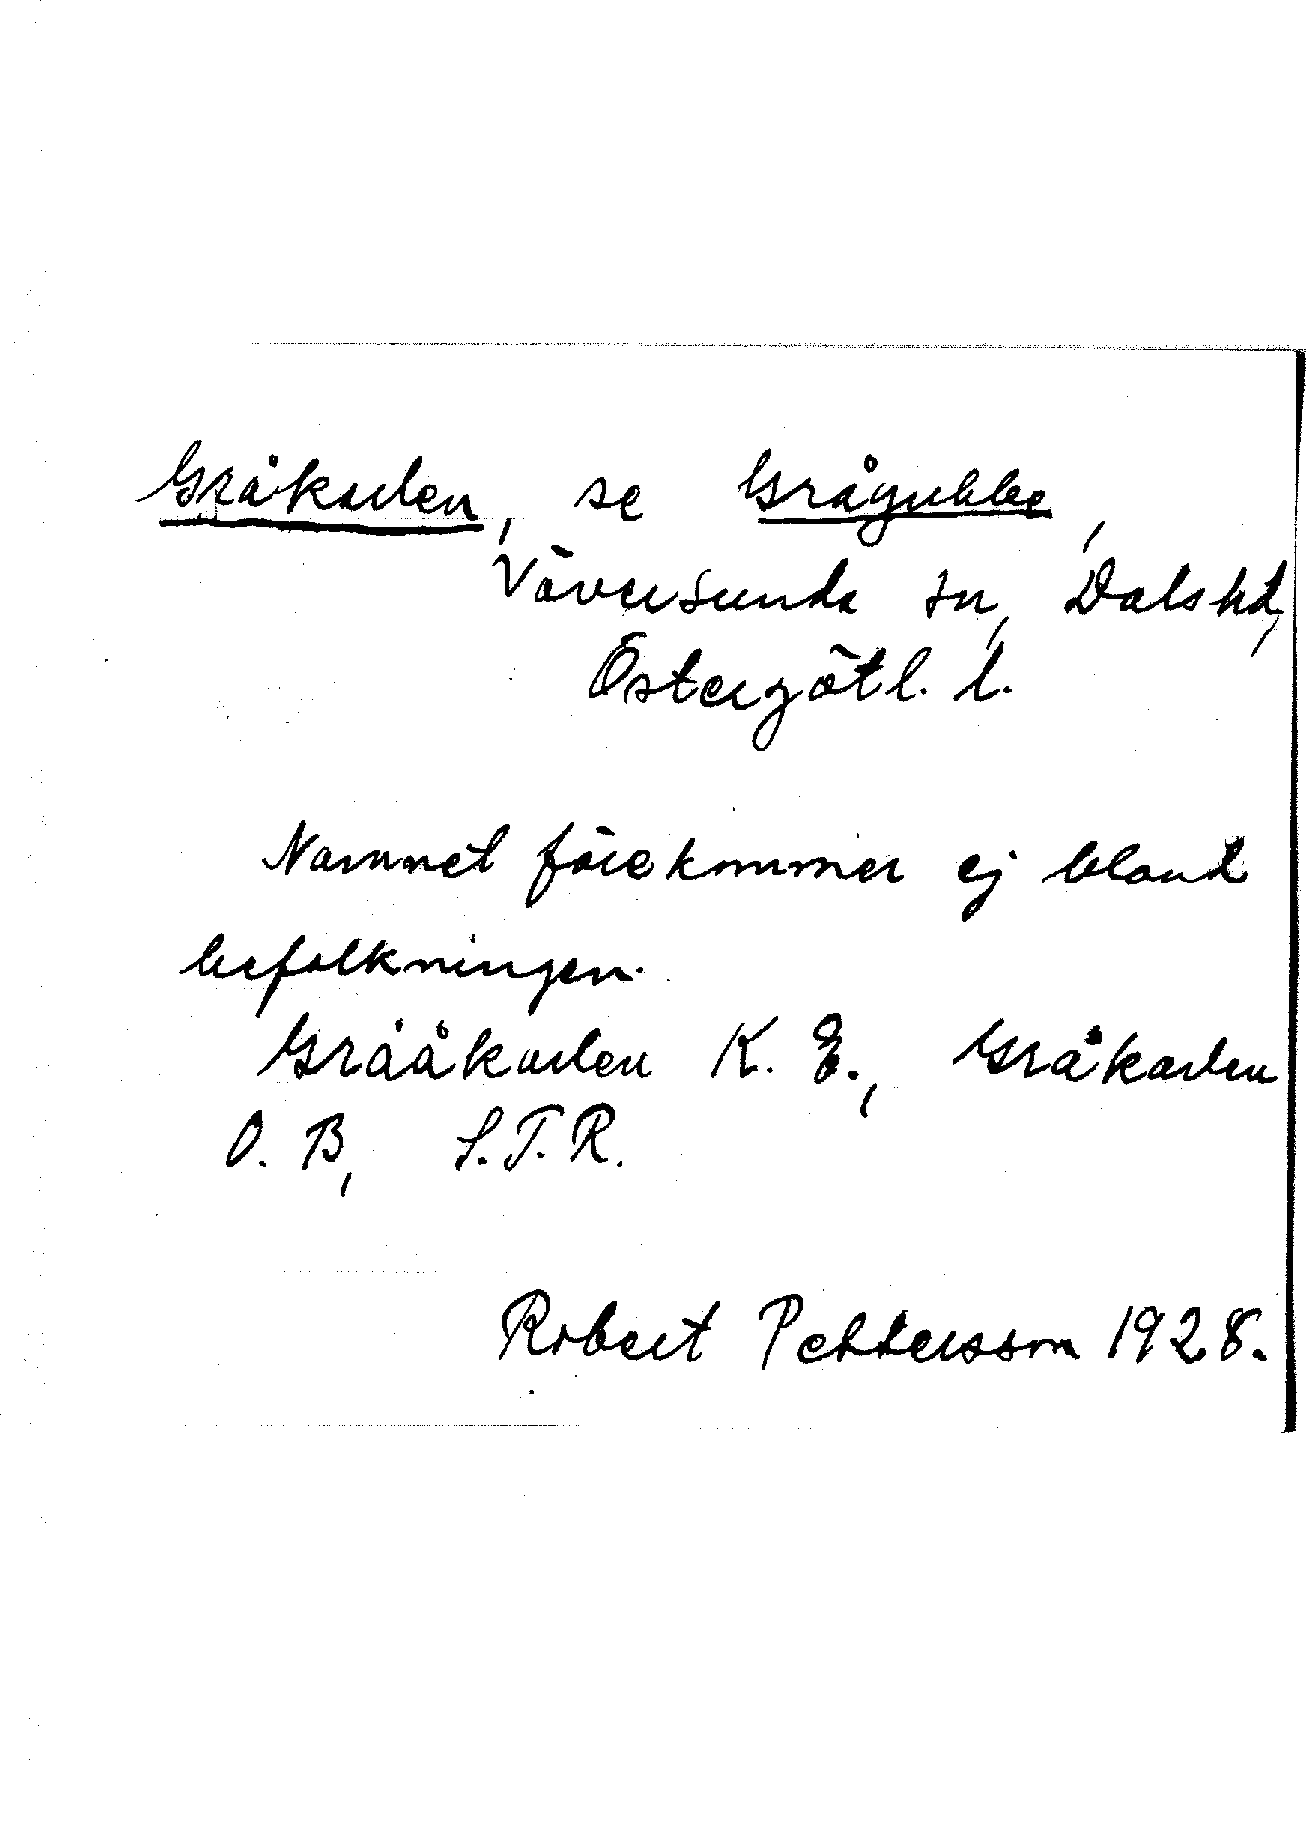 Gråkarlen, se Grågubbe,
Väversunda sn, Dals hd,
Östergötl. l.
Namnet förekommer ej bland
befolkningen.
Grååkarlen K. E., Gråkarlen
O. B, S.T.R.
Robert Pettersson 1928.